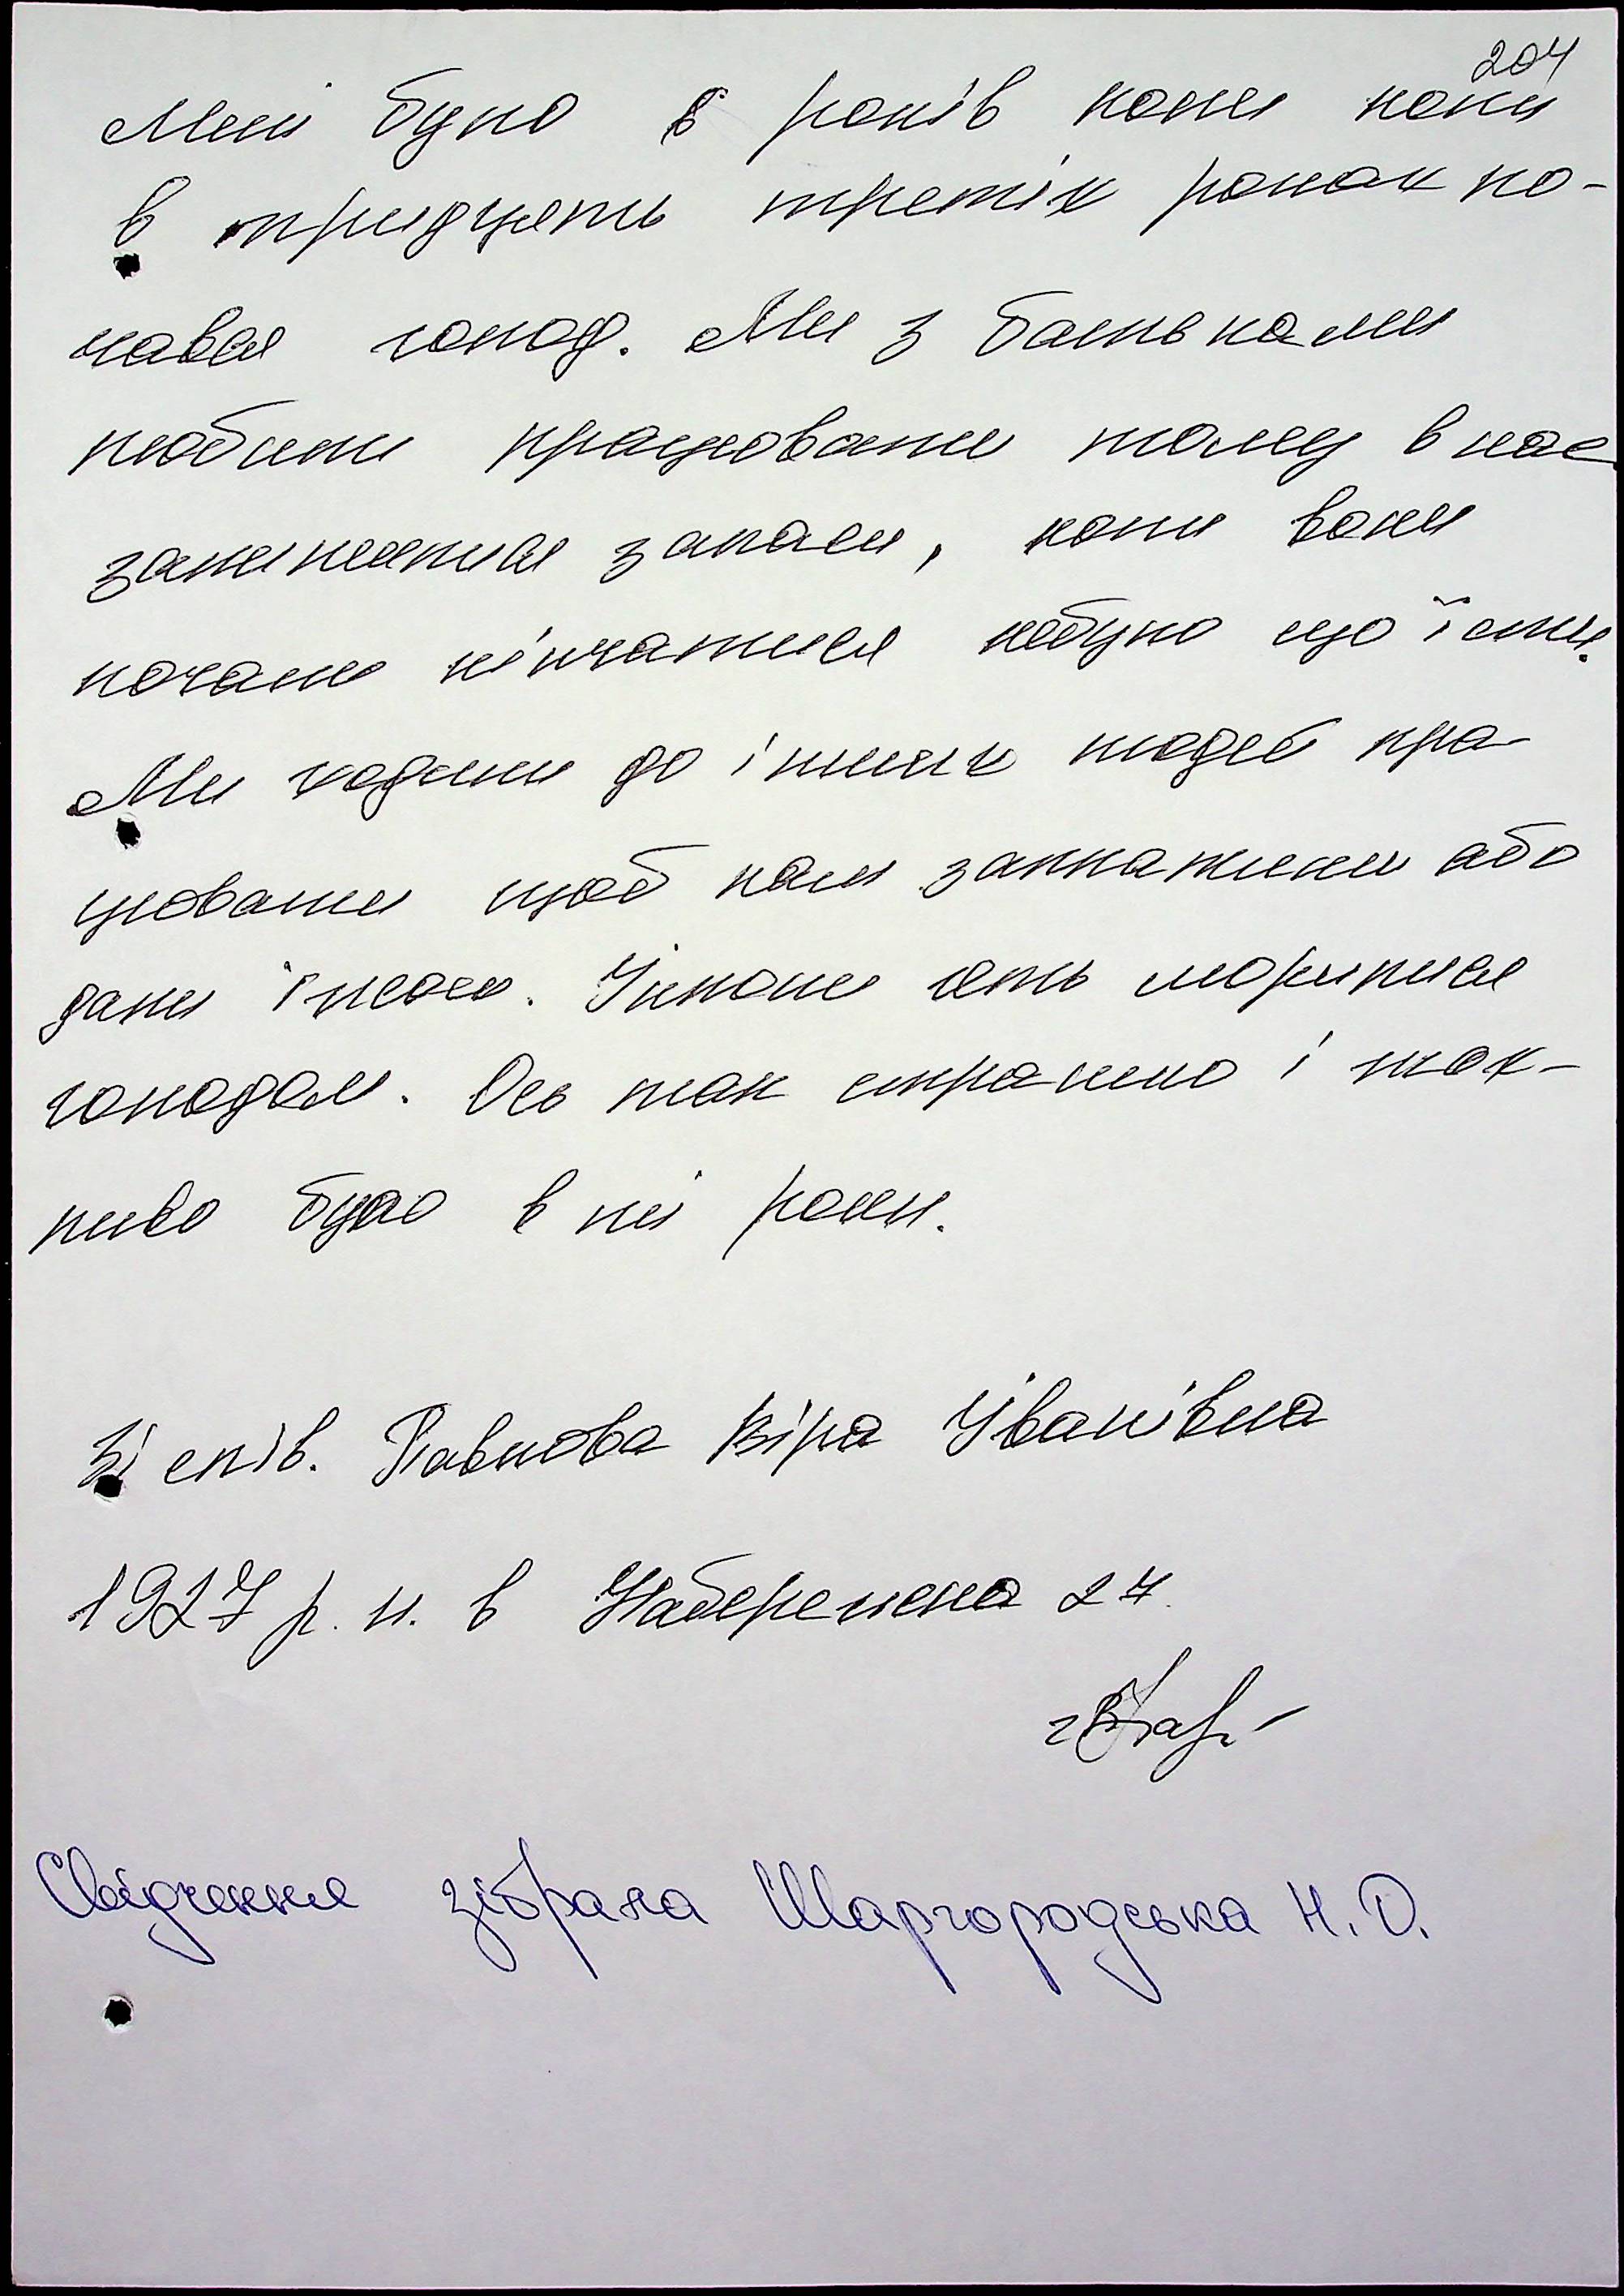 204
Мені було 6 років коли коли
в тридцять третіх роках по-
чався голод. Ми з батьками
любили працювати тому в нас
залишились запаси, коли вони
почали кінчатися небуло що їсти.
Ми ходили до інших людей пра-
цювати щоб нам заплатили або
дали їжею. Інколи геть морились
голодом. Ось так страшно і жах-
ливо було в ті роки.
Зі слів. Павлова Віра Іванівна
1927 р. н. в Набережна 27.
Свідчення зібрала Шаргородська Н. О.